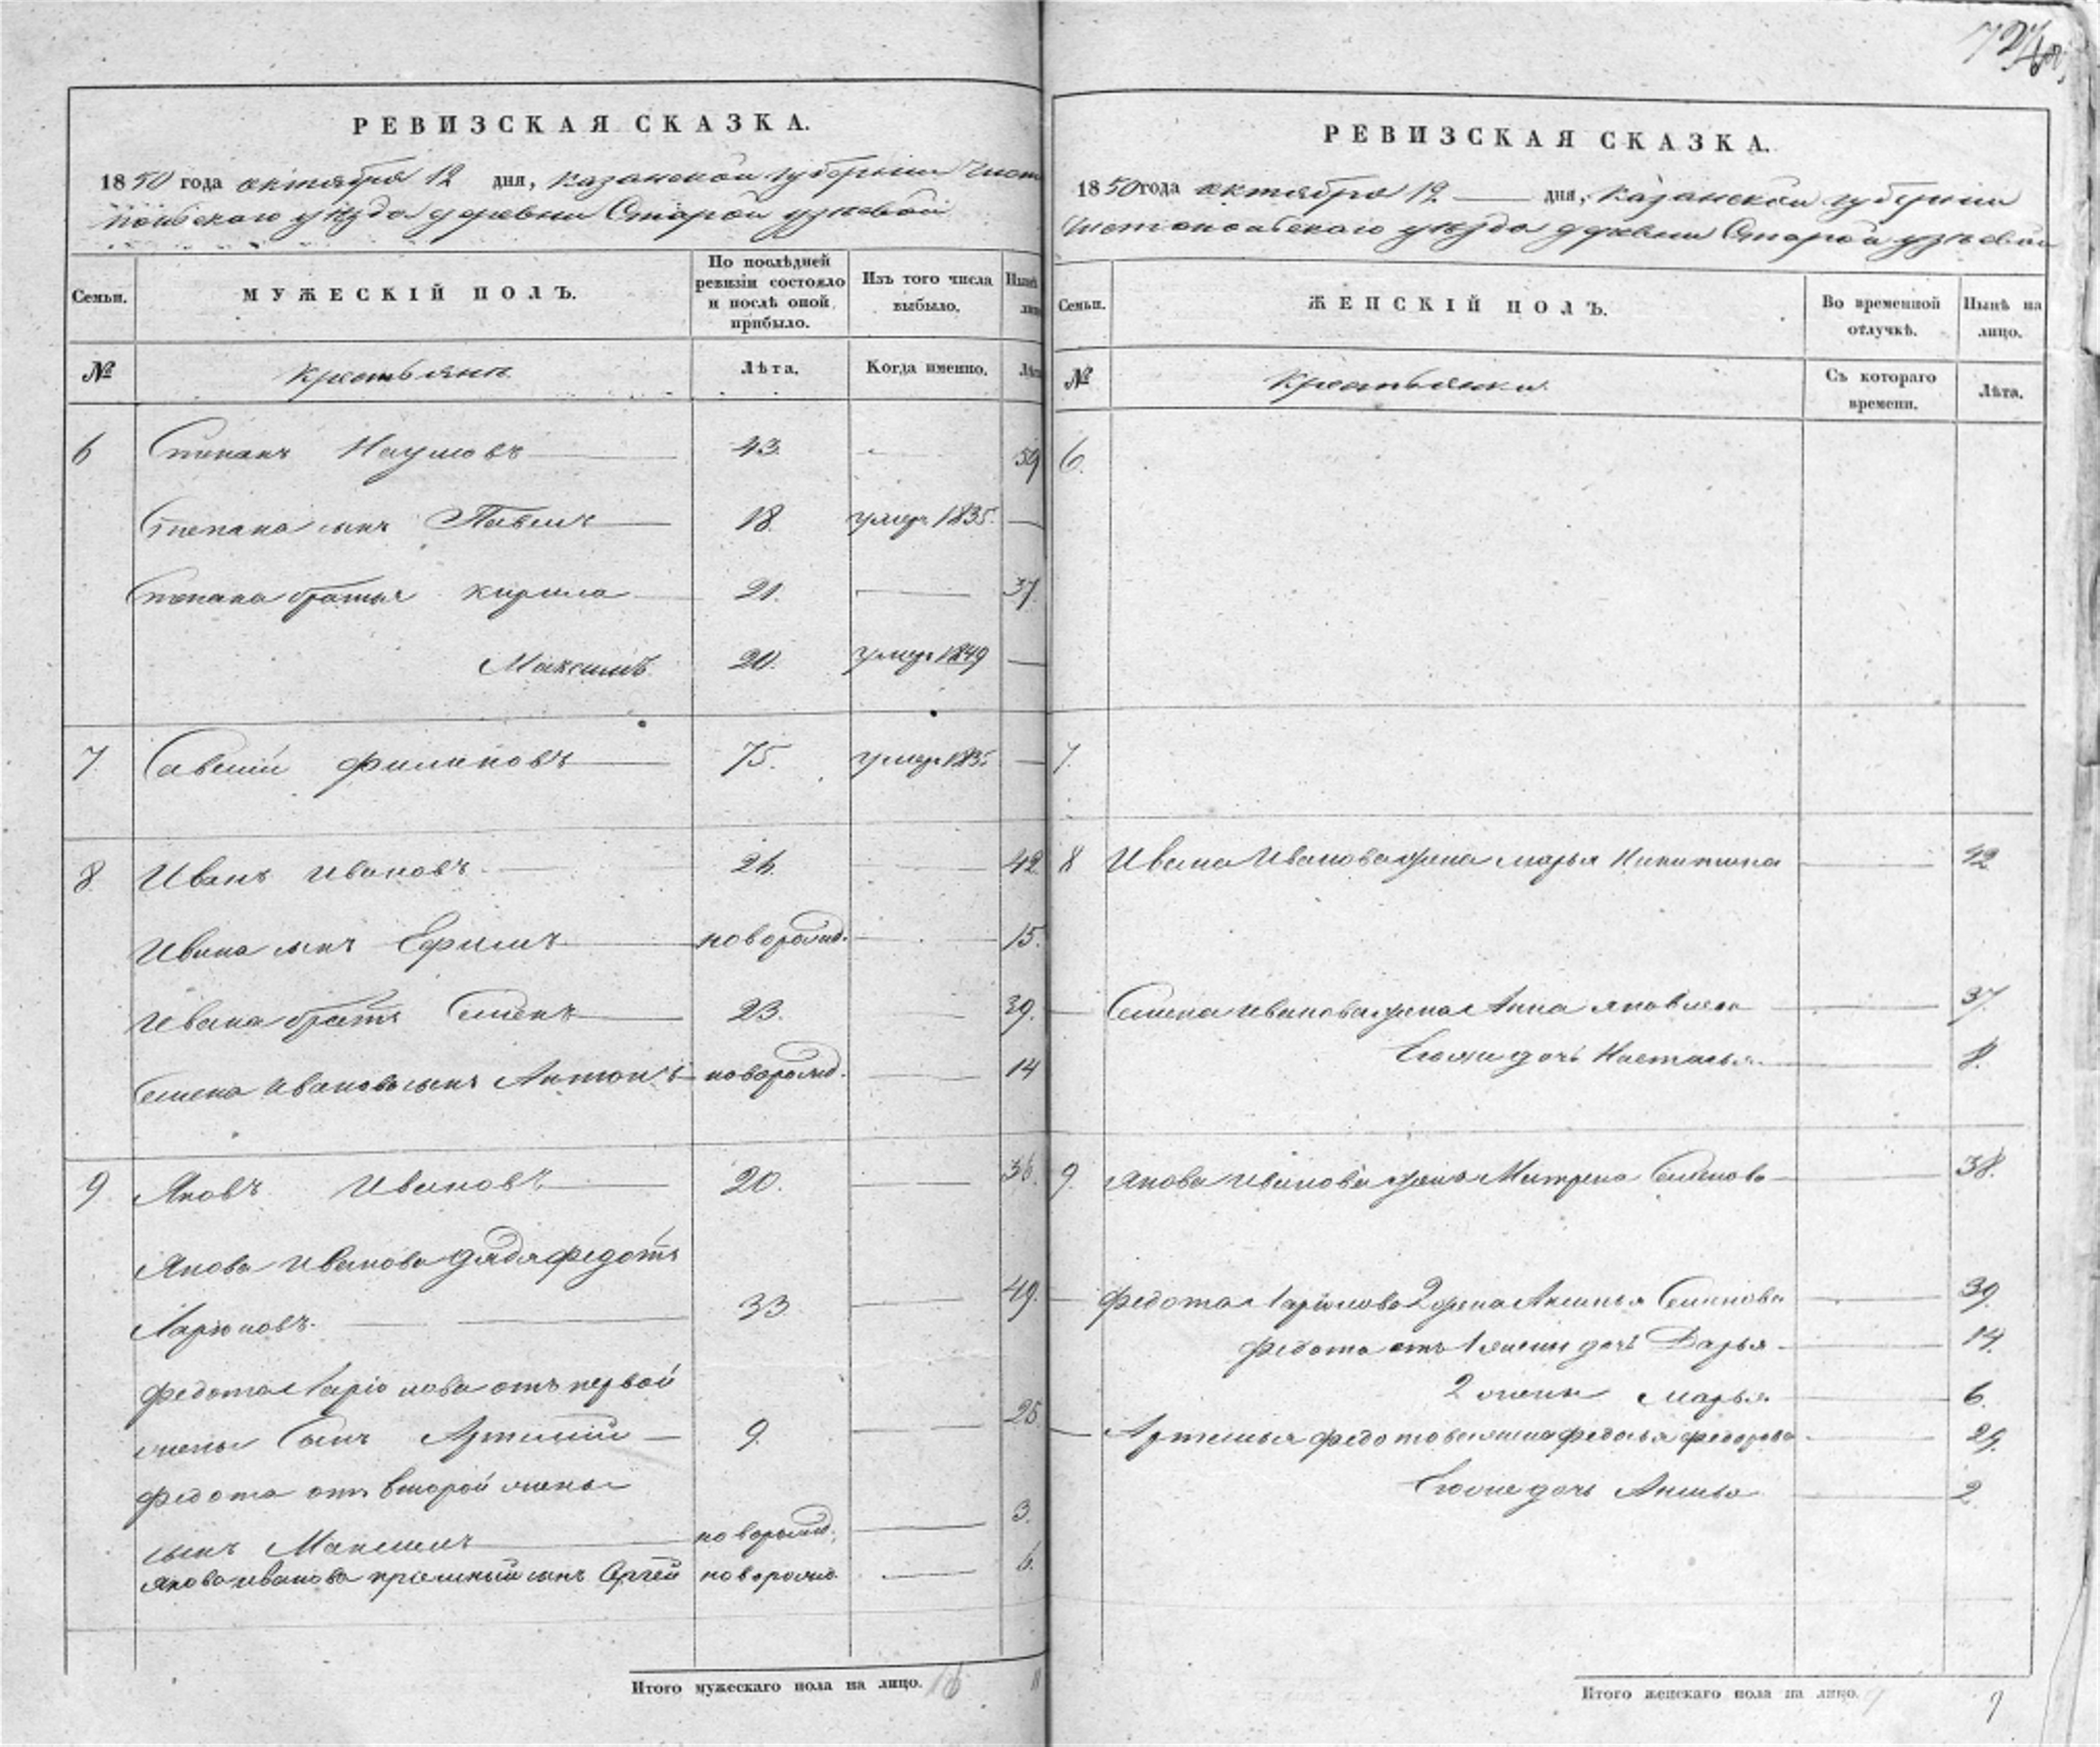 РЕВИЗСКАЯ СКАЗКА.
1850 года октября 12 дня, Казанской губернии Чисто
польскаго уѣзда деревни Старой Узѣевой
Семьи.
МУЖЕСКІЙ ПОЛЪ.
По послѣдней ревизіи состояло и послѣ оной прибыло.
Изъ того числа выбыло.
Нынѣ
№
Крестьянъ
Лѣта.
Когда именно.
Лѣта
6 Степанъ Наумовъ 43. 59
Степана сынъ Павелъ 18. умер. 1835.
Степана братья Кирила 21. 37.
Максимъ 20. умер. 1849
7. Савелій Филиповъ 75. умер. 1835
8 Иванъ Ивановъ 26. 42.
Ивана сынъ Ефимъ новорожд. 15.
Ивана братъ Семенъ 23. 39.
Семена Иванова сынъ Антонъ новорожд. 14
9 Яковъ Ивановъ 20. 36.
Якова Иванова дядя Федотъ
Ларіоновъ. 33. 49.
Федота Ларіонова отъ первой
жены сынъ Артемій 9. 25
Федота отъ второй жены
сынъ Максимъ новорожд. 3.
Якова Иванова пріемный сынъ Сергей новорожд. 6.
Итого мужескаго пола на лицо.
РЕВИЗСКАЯ СКАЗКА.
1850 года октября 12 дня, Казанской губерніи
Чистопольскаго уѣзда деревни Старой Узѣевой
Семьи.
ЖЕНСКІЙ ПОЛЪ.
Во временной отлучкѣ.
Нынѣ на лицо.
№
Крестьянки
Съ котораго времени.
Лѣта.
6.
7.
8 Ивана Иванова жена Марья Никитина 42
Семена Иванова жена Анна Яковлева 37.
Егоже дочь Настасья 8.
9. Якова Иванова жена Матрена Семенова 38.
Федота Ларіонова 2 жена Аксинья Семенова 39.
Федота отъ 1 жены дочь Дарья 14.
2 жены Марья 6.
Артемья Федотова жена Федосья Федорова 29.
Егоже дочь 2
Итого женскаго пола на лицо. 9